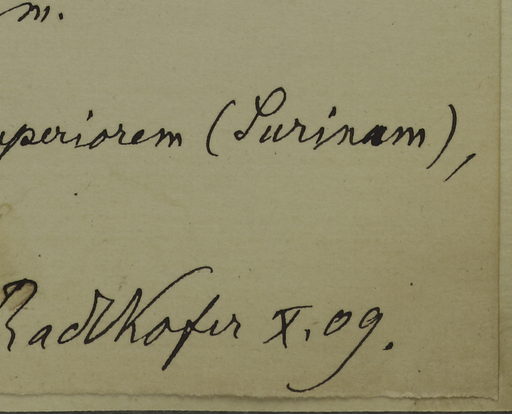 m.
uperiorem (Surinam),
Radlkofer X. 09.